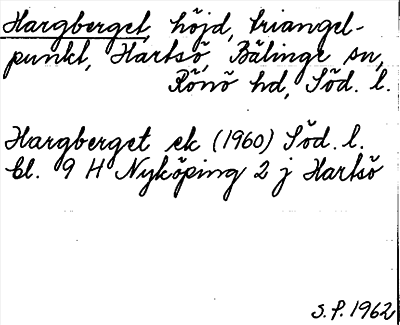 Hargberget, höjd, triangel-
punkt, Hartsö, Bälinge sn,
Rönö hd, Söd. l.
Hargberget ek (1960) Söd. l.
Bl. 9 H Nyköping 2 j Hartsö
S.P. 1962